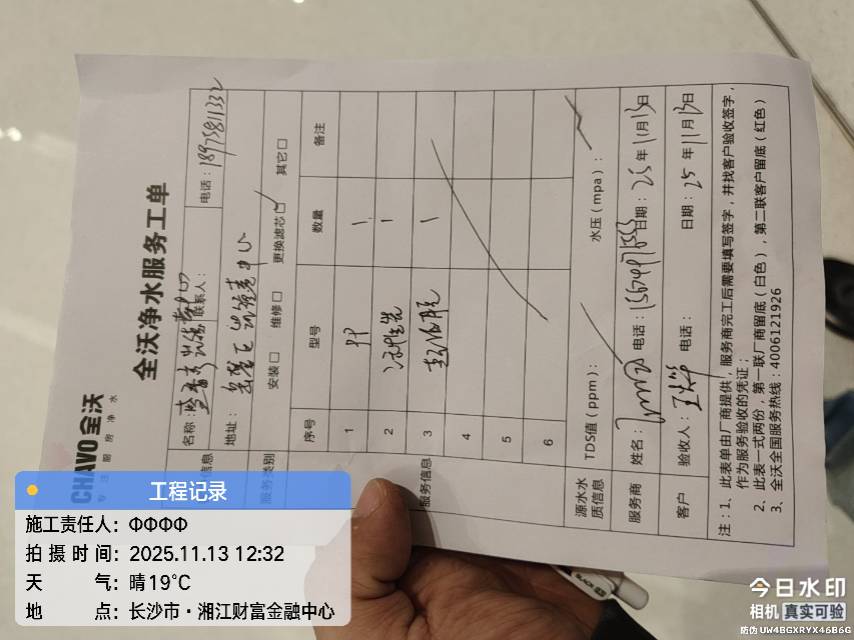 CHAVO 全沃
专注厨房净水
全沃净水服务工单
名称: 联系人: 电话: 18975811332
地址:
服务类别 安装□ 维修□ 更换滤芯□ 其它□
服务信息 序号 型号 数量 备注
1 PP 1
2 活性炭 1
3 1
4
5
6
源水水质信息 TDS值(ppm): 水压(mpa):
服务商 姓名: 电话: 日期: 25年11月13日
客户 验收人: 电话: 日期: 25年11月13日
注:1、此表单由厂商提供,服务商完工后需要填写签字,并找客户验收签字,
作为服务验收的凭证;
2、此表一式两份,第一联厂商留底(白色),第二联客户留底(红色)
3、全沃全国服务热线:4006121926
工程记录
施工责任人:ΦΦΦΦ
拍摄时间:2025.11.13 12:32
天气:晴19℃
地点:长沙市·湘江财富金融中心
今日水印
相机 真实可验
防伪 UW4BGXRYX46B6G